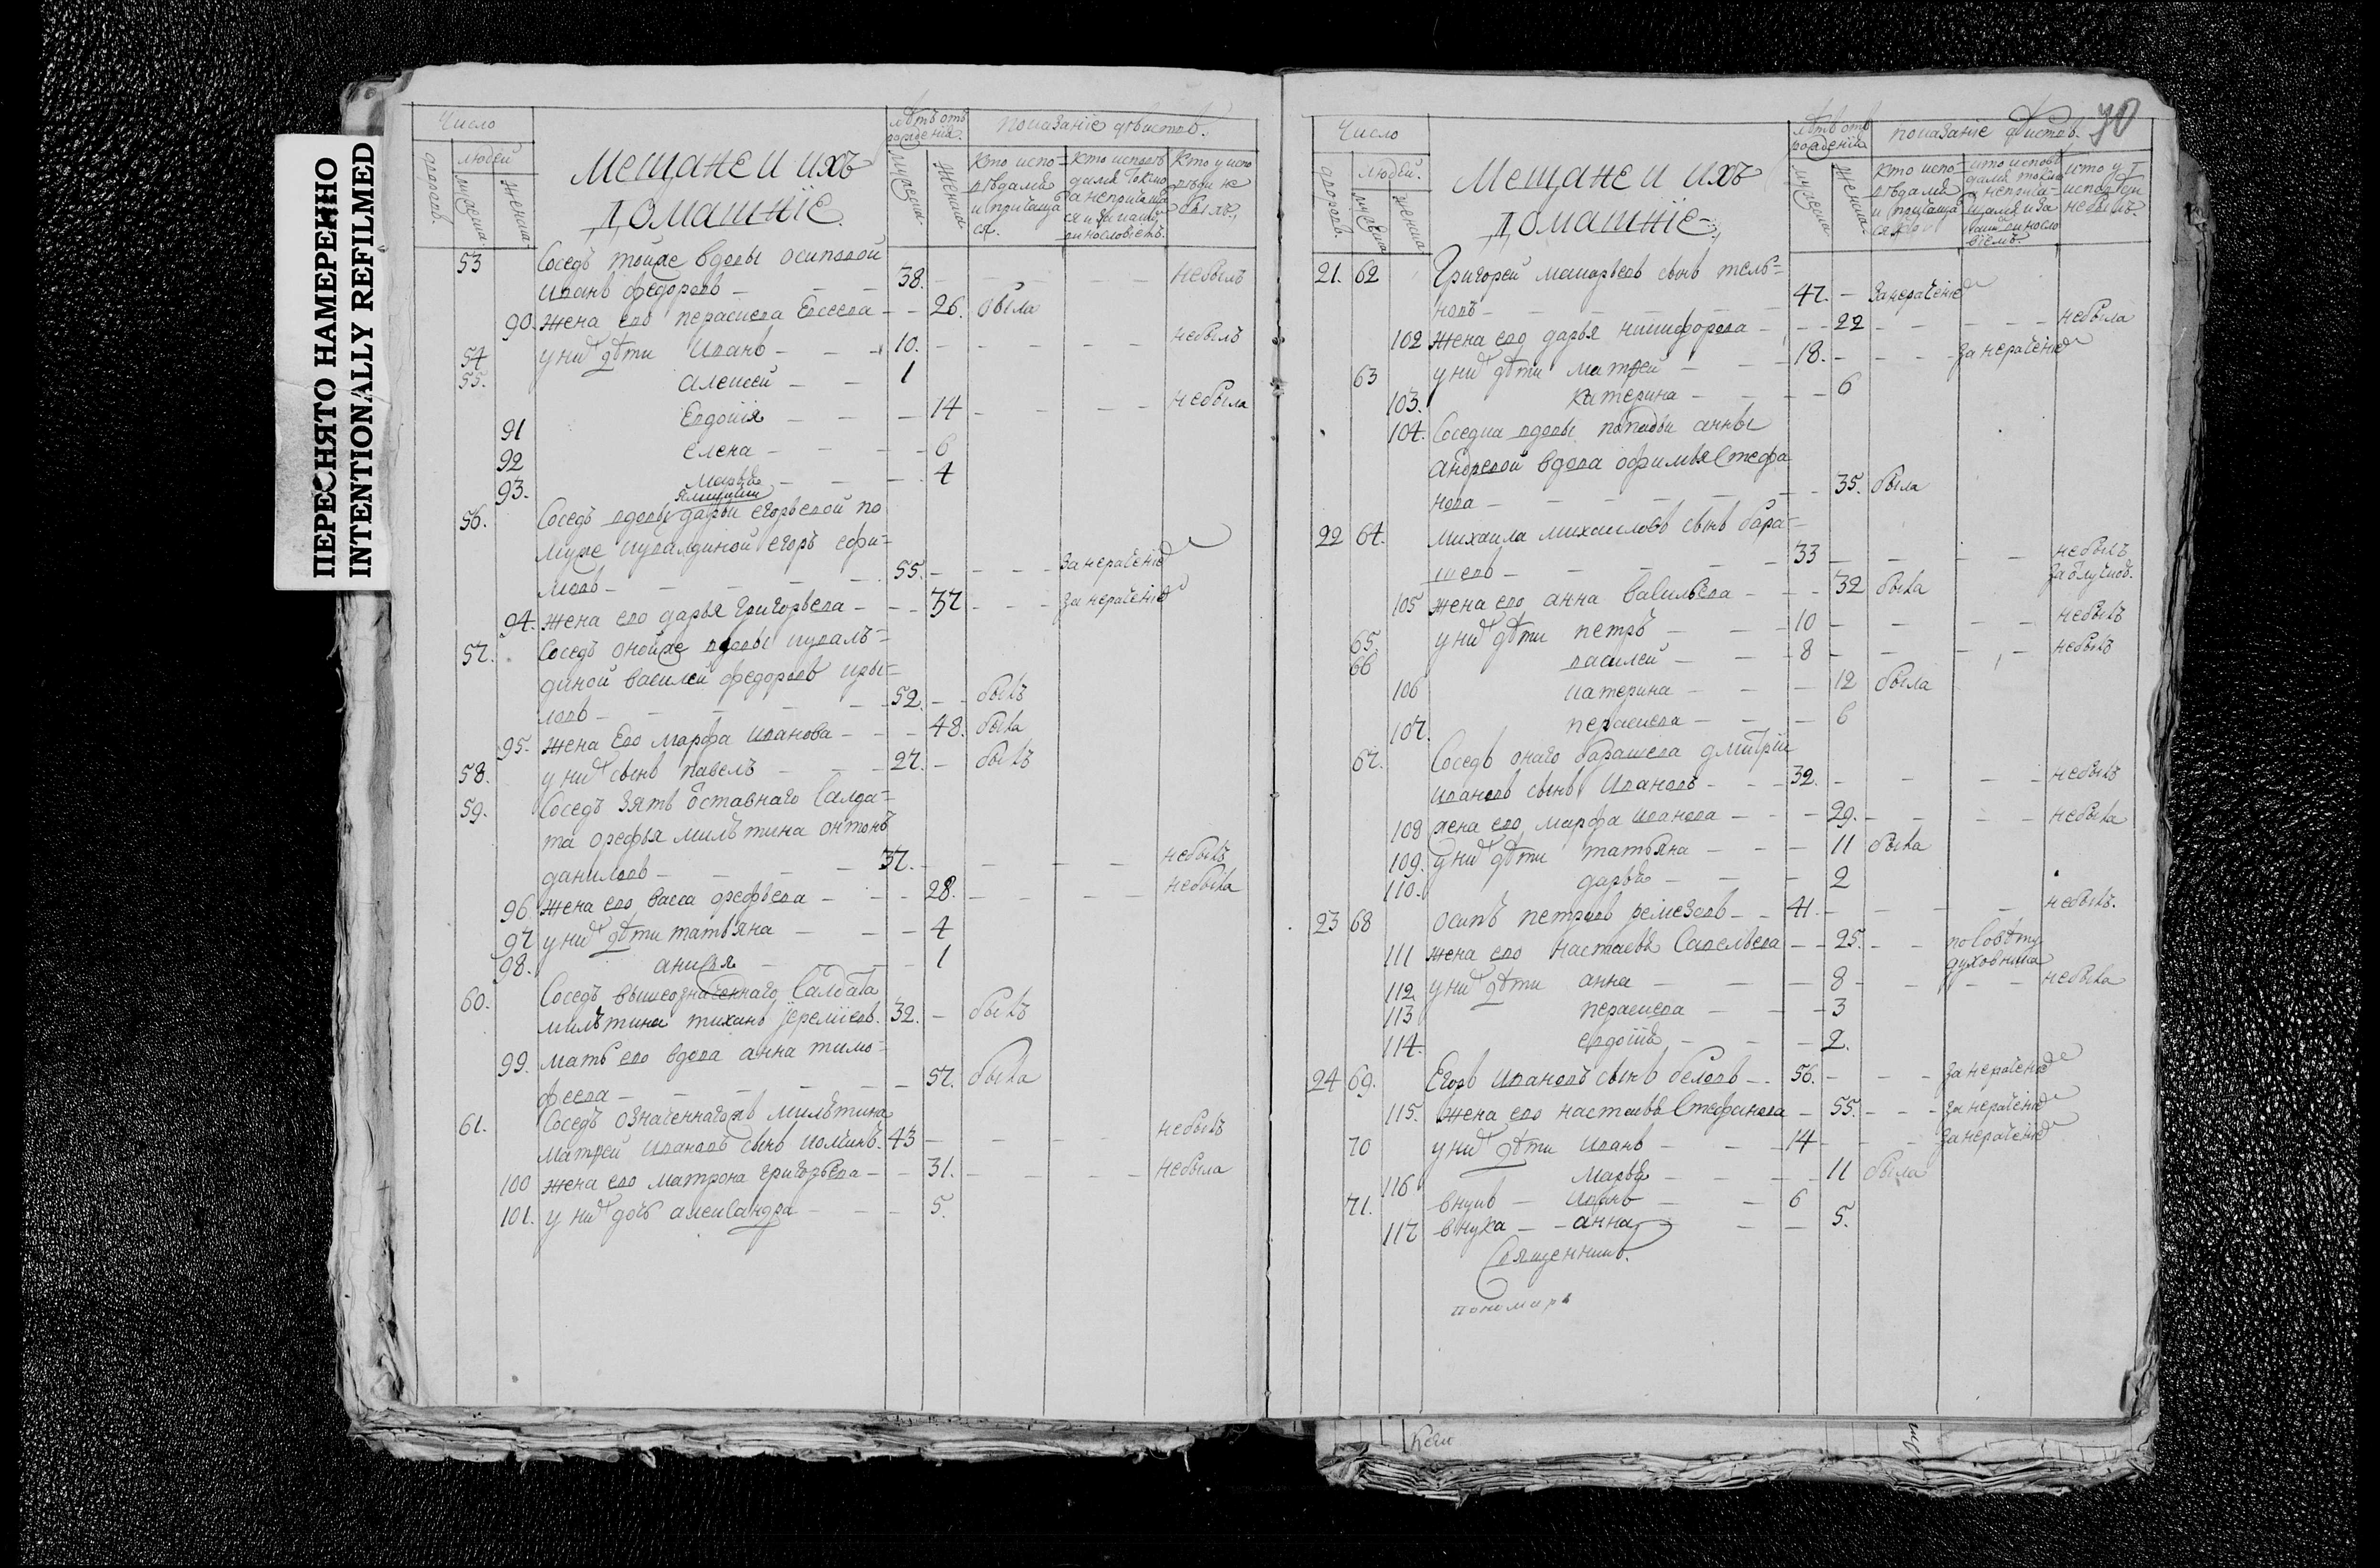 ПЕРЕСНЯТО НАМЕРЕННО
INTENTIONALLY REFILMED
Число
лѣтъ отъ рождения.
показанiе дѣистов.
дворовъ.
людей
мужеска
женска
Мещане и ихъ
домашнiе.
мужеска
женска
Кто испо-
вѣдался
и прича­ща
ся.
Кто исповѣ
дался токмо
а неприча
Кто у испо
вѣди не
былъ.
53 Соседъ тойже вдовы осиповой
иванъ федоровъ – 38. – небылъ
90. жена ево параскева Евсеева – 26. была
54 у них дѣти иванъ – 10. – небылъ
55. алексей – 1
91 Евдокiя – 14 – небыла
92 елена – 6
93. марья – 4
56. Соседъ вдовы дарьи егорьевой по
муже кувалдиной егоръ ефи=
мовъ – 55. – за нерачениемъ
94. жена ево дарья григорьева – 37 – за нерачениемъ
57. Соседъ онойже вдовы кувалъ=
диной василей федоровъ
52. – былъ
95. жена Ево марфа иванова – 48. была
58. у них сынъ павелъ – 27. – былъ
59. Соседъ зять отставнаго Салда=
та орефья милѣтина онтонъ
даниловъ – 37. – небылъ
96. жена ево васса орефьева – 28. – небыла
97 у них дѣти татьяна – 4
98. анисья – 1
60. Соседъ вышеозначеннаго Салдата
милѣтина тиханъ iеремiевъ. 32. – былъ
99. мать ево вдова анна тимо=
феева – 57. была
61. Соседъ означеннагожъ милѣтина
матвей ивановъ сынъ 43 – небылъ
100 жена ево матрона григорьева – 31. – небыла
101. у них дочь александра – 5.
70
Число
лѣтъ отъ
рождения
показанiе дѣистов.
дворовъ.
людей.
мужеска
женска
Мещане и ихъ
домашнiе
мужеска
женска
Кто испо-
вѣдался
и прича­ща
кто исповѣ
дался токмо
кто у
исповѣди
небылъ.
21. 62 Григорей макарьевъ сынъ тель=
новъ – 47. – за нерачениемъ
102 жена ево дарья никифорова – 22 – небыла
63 у них дѣти матвей – 18. – за нерачениемъ
103. катерина – 6
104. Соседка вдовы попадьи анны
андреевой вдова офимья Стефа
нова – 35. была
22 64. михаила михаиловъ сынъ бара=
шевъ – 33 – небылъ
за отлучкою.
105 жена ево анна васильева – 32 была
65. у них дѣти петръ – 10 – небылъ
66 василей – 8 – небылъ
106 катерина – 12 была
107. параскева – 6
67. Соседъ онаго барашева дмитрiй
ивановъ сынъ ивановъ – 32. – небылъ
108 жена ево марфа иванова – 29. – небыла
109. у них дѣти татьяна – 11 была
110. дарья – 2
23 68 осипъ петровъ ремезовъ – 41. – небылъ.
111 жена ево настасья Савельева – 25. – по совѣту
духовника
112 у них дѣти анна – 8 – небыла
113 параскева – 3
114. евдокiя – 2.
24 69. Егоръ ивановъ сынъ беловъ – 56. – за нерачениемъ
115. жена ево настасья Стефанова – 55. – за нерачениемъ
70 у них дѣти иванъ – 14 – за нерачениемъ
116 марья – 11 была
71. внукъ – иванъ – 6
117 внука – анна – 5.
Священникъ.
пономарь